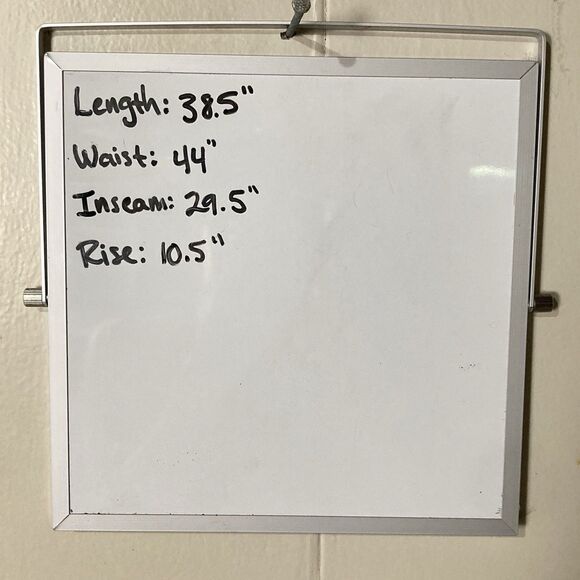 Length: 38.5"
Waist: 44"
Inseam: 29.5"
Rise: 10.5"